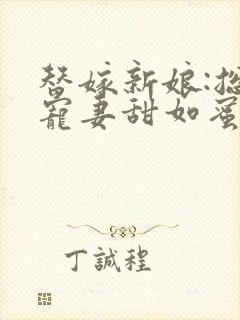 替嫁新娘:总
宠妻甜如蜜
丁誠程